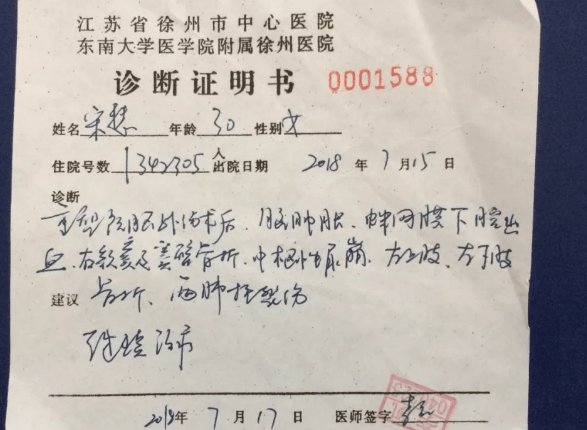 江苏省徐州市中心医院
东南大学医学院附属徐州医院
诊断证明书 0001588
姓名 宋 年龄 30 性别 女
住院号数 1342305 入出院日期 2018 年 7 月 15 日
诊断
重型颅脑外伤术后、脑肿胀、蛛网膜下腔出
血、右 骨折、中枢性尿崩、左上肢、左下肢
建议 骨折、两肺挫裂伤
继续治疗
2018年 7 月 17 日 医师签字